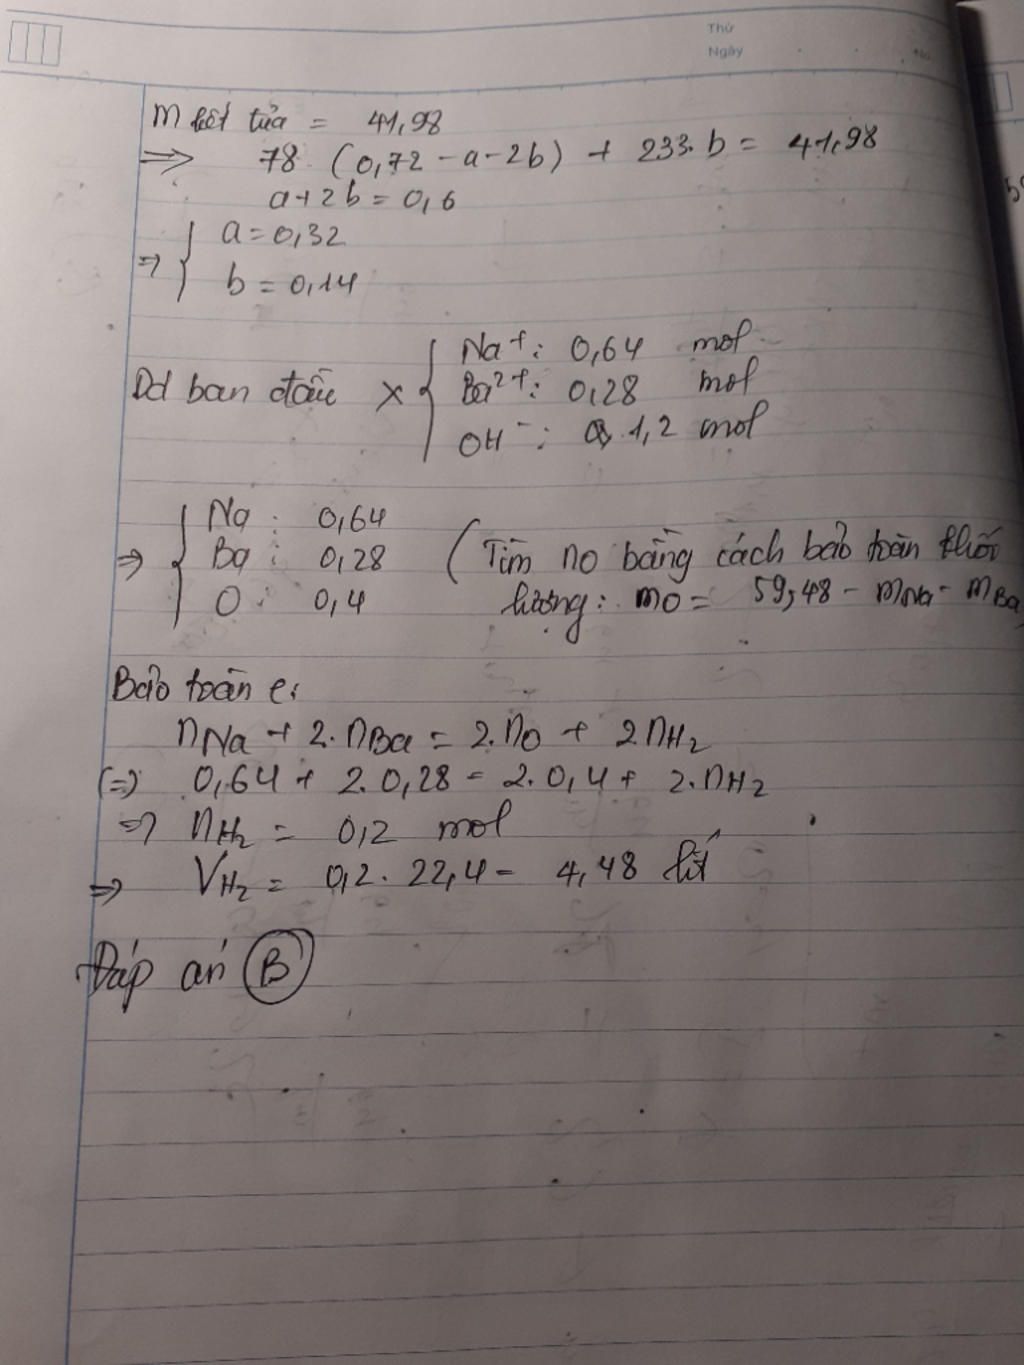 Thứ
Ngày
No
m kết tủa = 41,98
=> 78 (0,72 - a - 2b) + 233.b = 41,98
a + 2b = 0,6
=> { a = 0,32
b = 0,14
Dd ban đầu X { Na⁺: 0,64 mol
Ba²⁺: 0,28 mol
OH⁻: 1,2 mol
=> { Na: 0,64
Ba: 0,28 (Tìm nO bằng cách bảo toàn khối
O: 0,4 lượng: mO = 59,48 - mNa - mBa
Bảo toàn e:
nNa + 2.nBa = 2.nO + 2nH₂
(=) 0,64 + 2.0,28 = 2.0,4 + 2.nH₂
=> nH₂ = 0,2 mol
=> VH₂ = 0,2.22,4 = 4,48 lít
Đáp án B